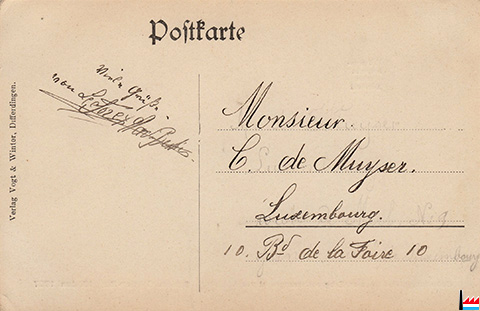 Postkarte
Viele Grüße
von
Verlag Vogt & Winter, Differdingen.
Monsieur.
C. de Muyser.
Luxembourg.
10. Bd de la Foire 10